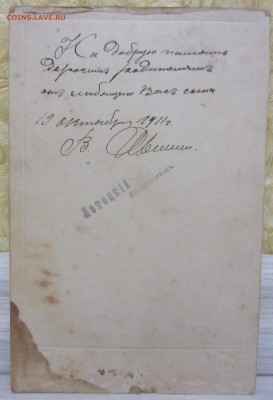 COINS.LAVE.RU
На добрую память
Дорогимъ родителямъ
отъ любящего Васъ сына
19 октября 1911 г
В.